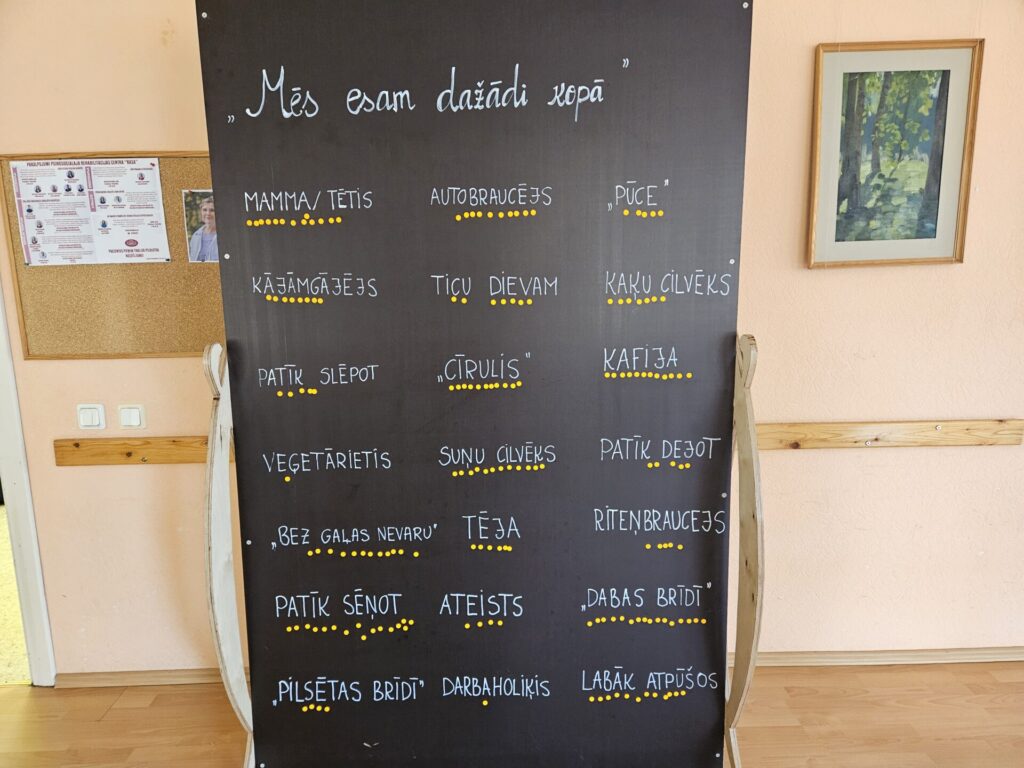 „Mēs esam dažādi kopā"
MAMMA/TĒTIS AUTOBRAUCĒJS „PŪCE"
KĀJĀMGĀJĒJS TICU DIEVAM KAĶU CILVĒKS
PATĪK SLĒPOT „CĪRULIS" KAFIJA
VEĢETĀRIETIS SUŅU CILVĒKS PATĪK DEJOT
„BEZ GAĻAS NEVARU" TĒJA RITEŅBRAUCEJS
PATĪK SĒŅOT ATEISTS „DABAS BRĪDĪ"
„PILSĒTAS BRĪDĪ" DARBAHOLIĶIS LABĀK ATPŪŠOS